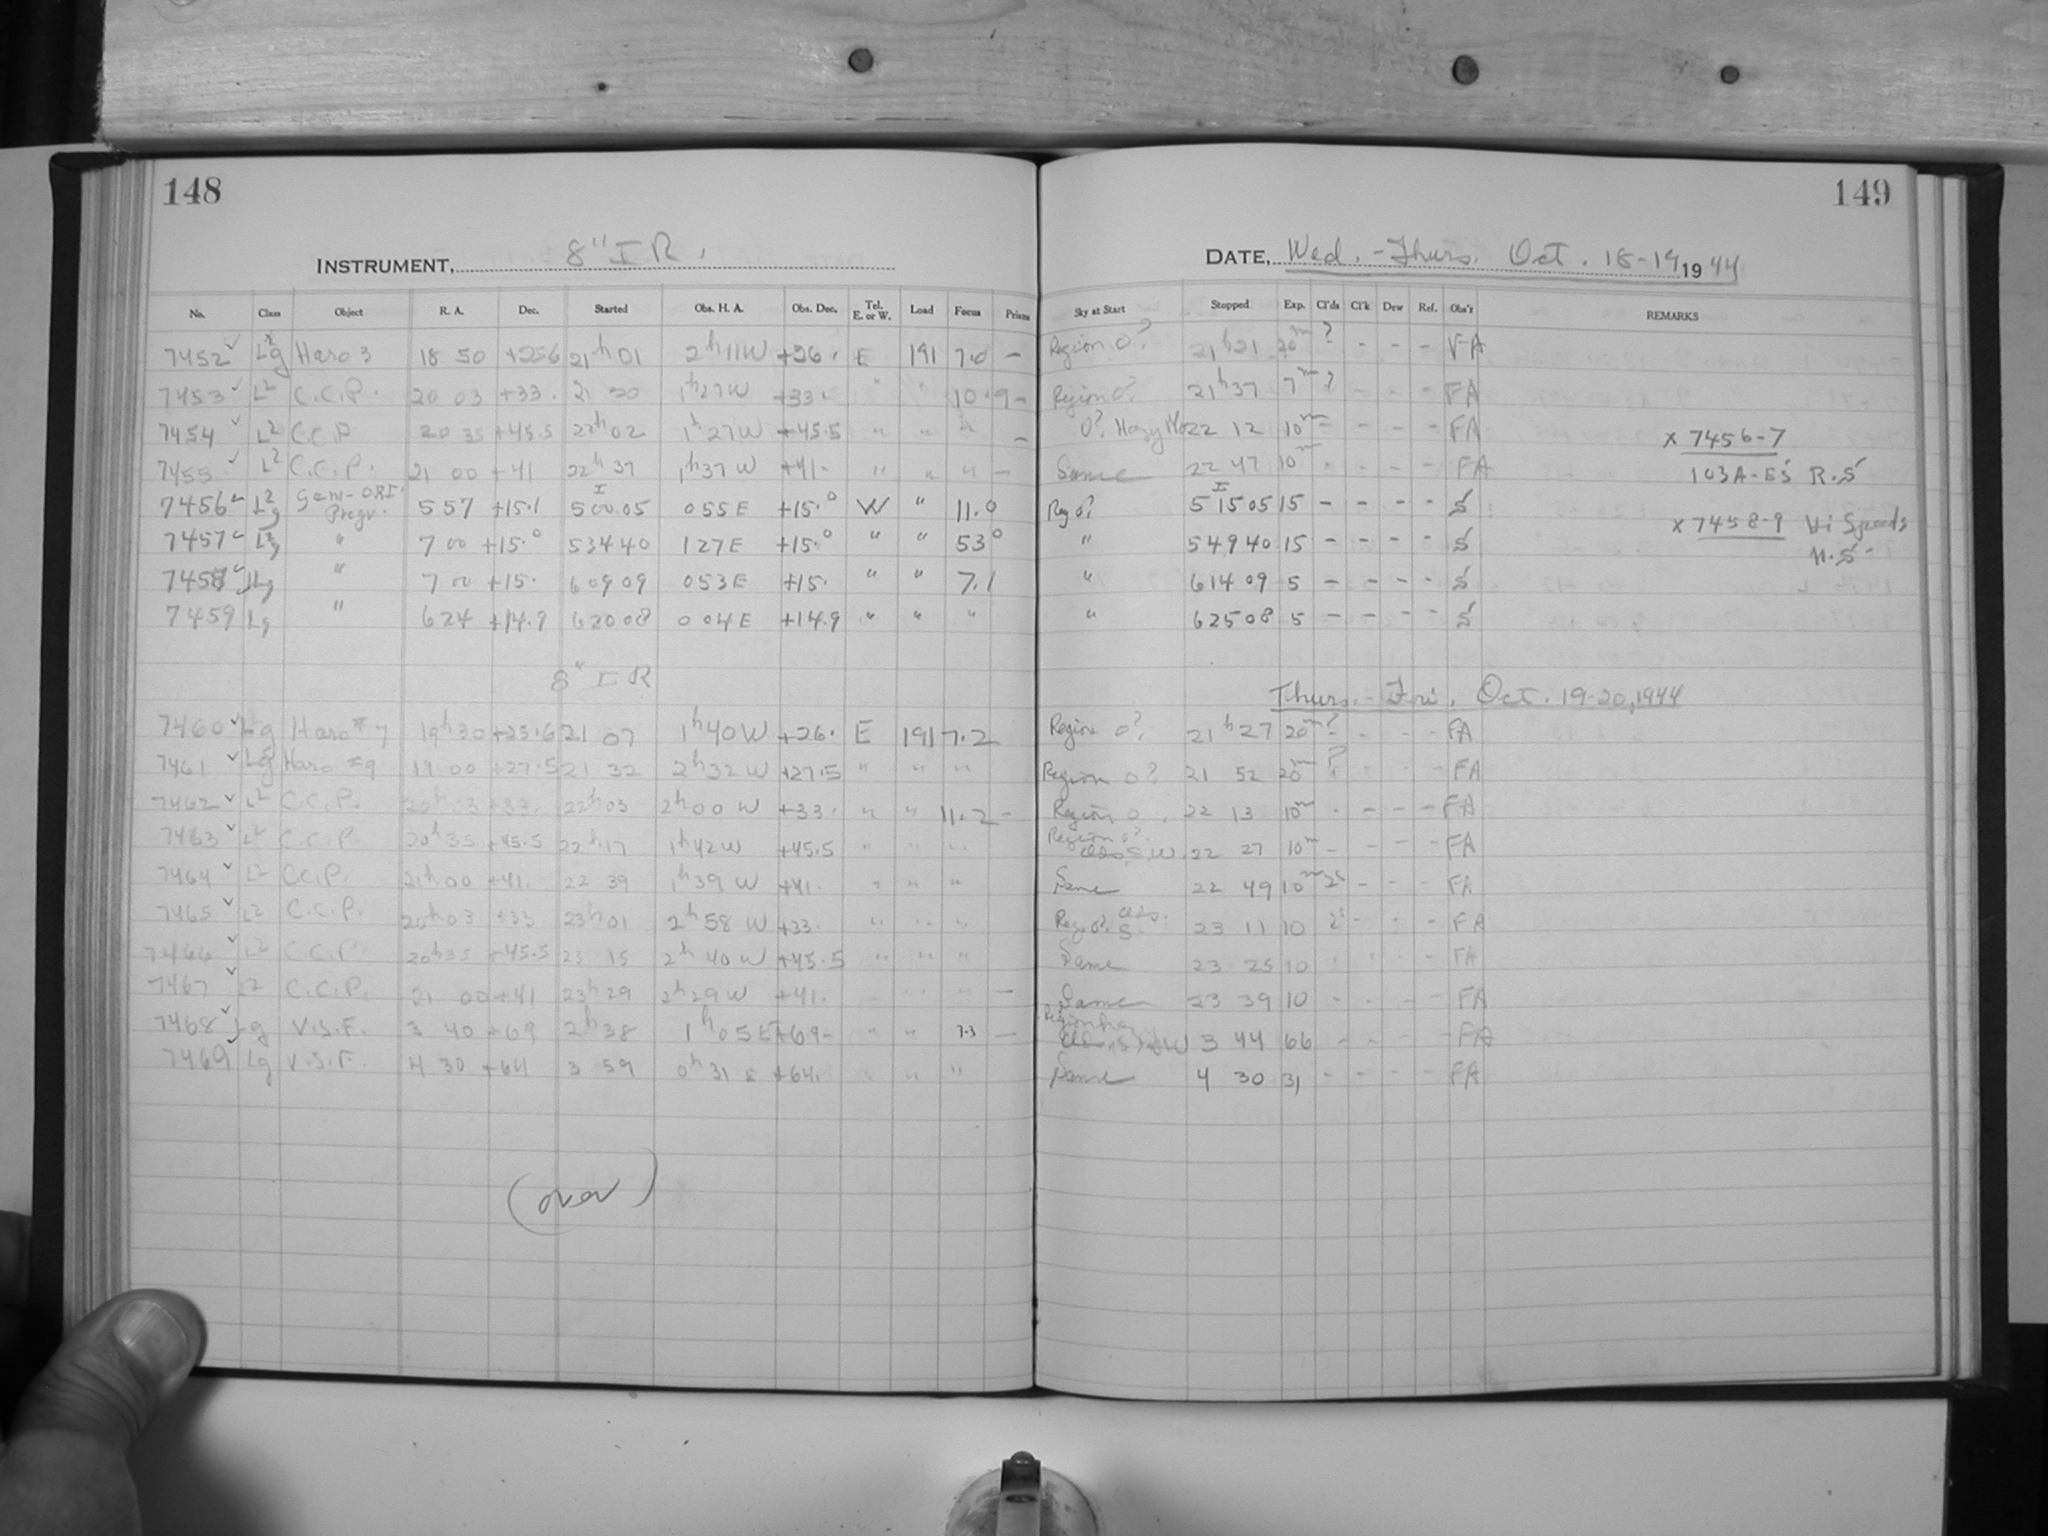 148
INSTRUMENT, 8" I R.
No. Class Object R. A. Dec. Started Obs. H. A. Obs. Dec. Tel. E. or W. Load Focus Prism
7452 Lg Haro 3 18 50 +25.6 21h 01 2h 11W +26. E 191 7.0 —
7453 L2 C.C.P. 20 03 +33. 21 20 1h 27W +33. " " 10.9 —
7454 L2 C.C.P. 20 35 +45.5 22h 02 1h 27W +45.5 " " " —
7455 L2 C.C.P. 21 00 +41 22h 37 1h 37 W +41. " " " —
7456 L2g Gem-ORI Progr. 5 57 +15.1 5 00 05 0 55 E +15.0 W " 11.0
7457 L2g " 7 00 +15.0 5 34 40 1 27 E +15.0 " " 53°
7458 Lg " 7 00 +15. 6 09 09 0 53 E +15. " " 7.1
7459 Lg " 6 24 +14.9 6 20 08 0 04 E +14.9 " " "
8" I R
7460 Lg Haro #7 19h 30 +25.6 21 07 1h 40 W +26. E 191 7.2
7461 Lg Haro #9 19 00 +27.5 21 32 2h 32 W +27.5 " " "
7462 L2 C.C.P. 20h 03 +33. 22h 03 2h 00 W +33. " " 11.2 —
7463 L2 C.C.P. 20h 35 +45.5 22h 17 1h 42W +45.5 " " "
7464 L2 C.C.P. 21h 00 +41. 22 39 1h 39 W +41. " " "
7465 L2 C.C.P. 20h 03 +33 23h 01 2h 58 W +33. " " "
7466 L2 C.C.P. 20h 35 +45.5 23 15 2h 40 W +45.5 " " "
7467 L2 C.C.P. 21 00 +41 23h 29 2h 29 W +41. " " " —
7468 Lg V.S.F. 3 40 +69 2h 38 1h 05 E +69 " " 7.3 —
7469 Lg V.S.F. 4 30 +64 3 59 0h 31 E +64. " " "
(over)
149
DATE, Wed. - Thurs. Oct. 18-19 1944
Sky at Start Stopped Exp. Cl'ds Cl'k Dew Ref. Obs'r REMARKS
Region 0? 21h 21 20m ? - - - FA
Region 0? 21h 37 7m ? - - - FA
0? Hazy 22 12 10m - - - - FA
x 7456-7
Same 22 47 10m - - - - FA
103A-E's R.S
Reg 0? 5 15 05 15 - - - - S
x 7458-9 Hi Speeds
" 5 49 40 15 - - - - S
" 6 14 09 5 - - - - S
" 6 25 08 5 - - - - S
Thurs. - Fri. Oct. 19-20, 1944
Region 0? 21h 27 20m ? - - - FA
Region 0? 21 52 20m ? - - - FA
Region 0 22 13 10m - - - - FA
Region 0? 22 27 10m - - - - FA
Same 22 49 10m - - - FA
Reg 0? clds. S. 23 11 10 - - - FA
Same 23 25 10 - - - - FA
Same 23 39 10 - - - - FA
Region 3 44 66 - - - - FA
Same 4 30 31 - - - - FA